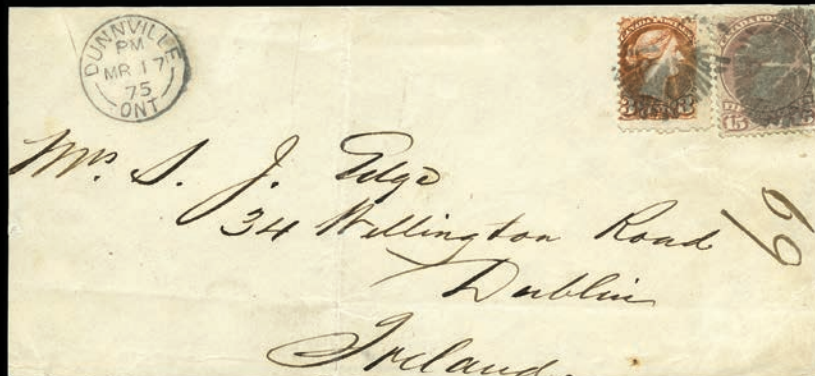 DUNNVILLE
PM
MR 17
75
ONT
CANADA POSTAGE
CANADA POSTAGE
3 3
15
Mrs. S. J. Edge
34 Wellington Road
Dublin
Ireland.
69